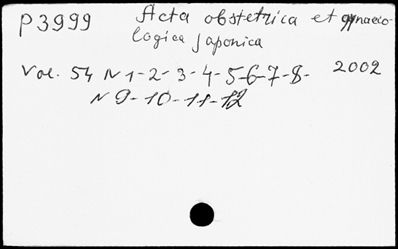 P3999
Acta obstetrica et gynaeco-
logica japonica
Vol. 54 N 1-2-3-4-5-6-7-8- 2002
N 9-10-11-12